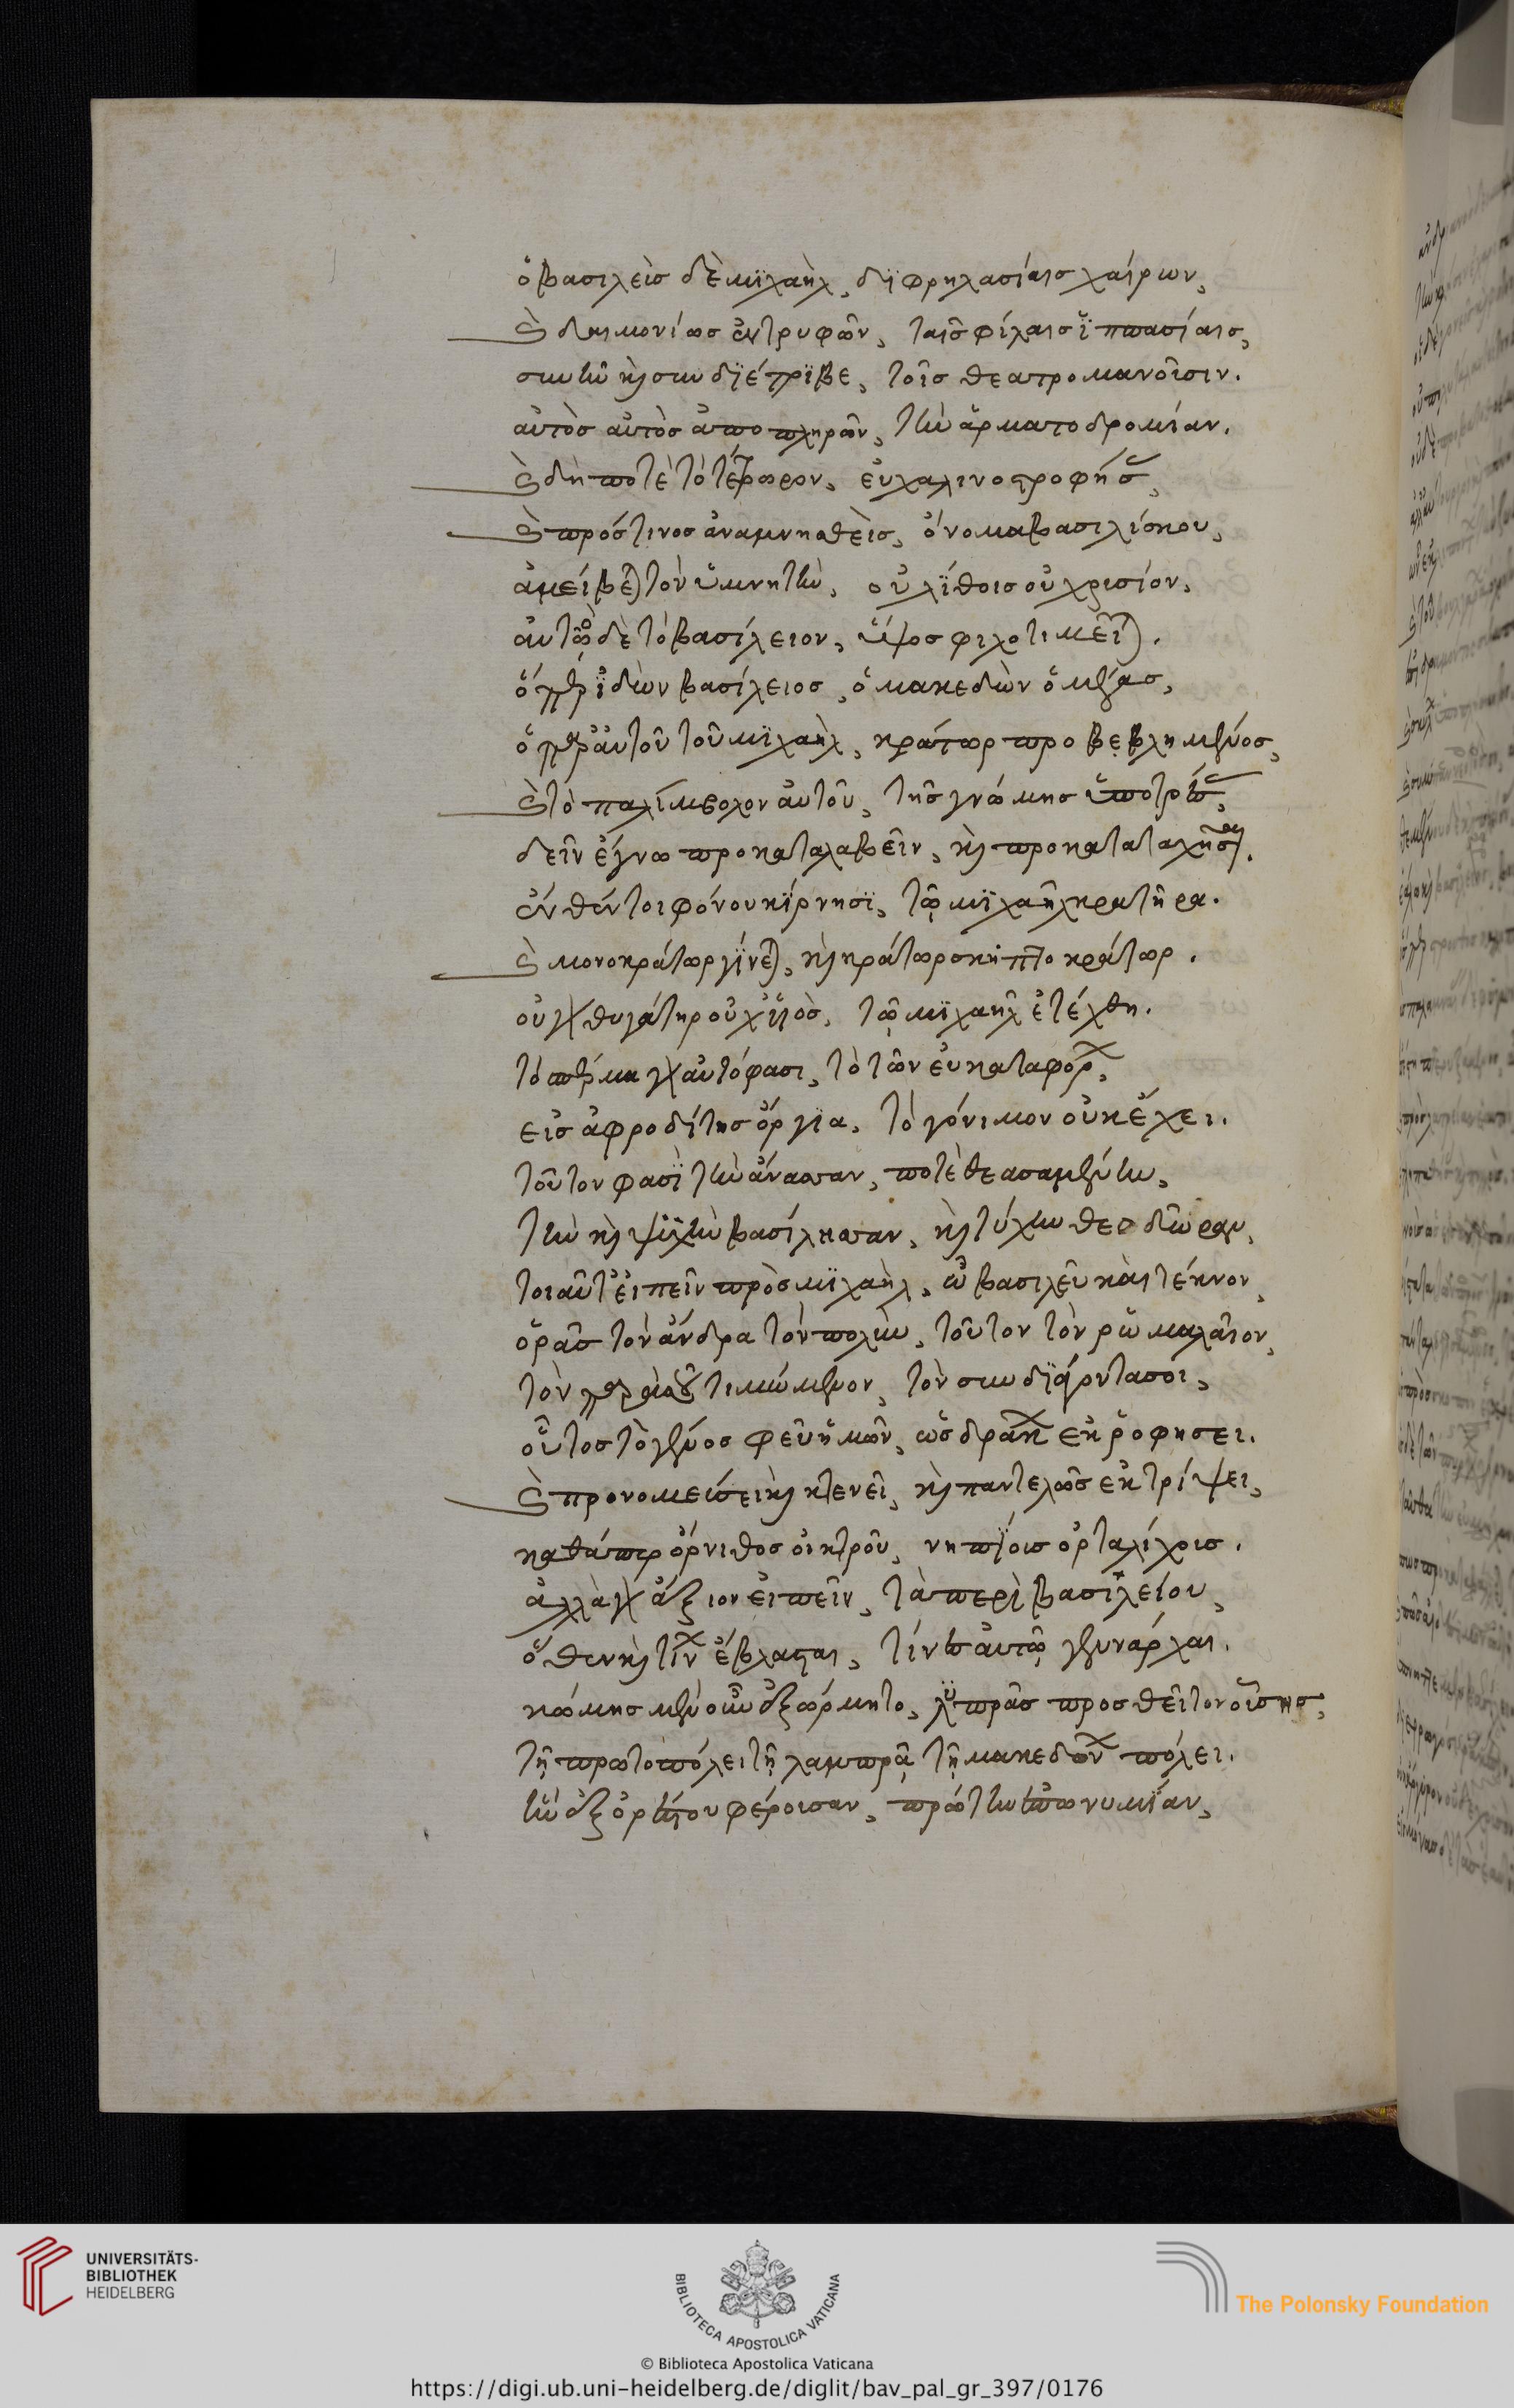 ὁ βασιλεὺς δὲ μιχαὴλ, διφρηλασίαις χαίρων,
καὶ δαιμονίως ἐντρυφῶν, ταῖς φίλαις ἱππασίαις,
συνῆν καὶ συνδιέτριβε, τοῖς θεατρομανοῦσιν.
αὐτὸς αὐτὸς ἀποπληρῶν, τὴν ἁρματοδρομίαν.
καὶ δήποτε τὸ τέθριππον, εὐχαλινοστροφήσας,
καὶ πρός τινος ἀναμνησθεὶς, ὄνομα βασιλίσκου,
ἀμείβεται τὸν ὑμνητὴν, οὐ λίθοις οὐ χρυσίον,
αὐτὸ δὲ τὸ βασίλειον, ὕψος φιλοτιμεῖται.
ὅπερ ἰδὼν βασίλειος, ὁ μακεδὼν ὁ μέγας,
ὁ παρ' αὐτοῦ τοῦ μιχαὴλ, κράτωρ προβεβλημένος,
καὶ τὸ παλίμβολον αὐτοῦ, τῆς γνώμης ὑποτρέσας,
δεῖν ἔγνω προκαταλαβεῖν, καὶ προκαταταχῆσαι.
ἐνθέντοι φόνου κίρνησι, τῷ μιχαὴλ κρατῆρα.
καὶ μονοκράτωρ γίνεται, καὶ κράτωρ σκηπτοκράτωρ.
οὐ γὰρ θυγάτηρ οὐχ υἱὸς, τῷ μιχαὴλ ἐτέχθη.
τὸ σπέρμα γὰρ αὐτό φασι, τὸ τῶν εὐκαταφόρων,
εἰς ἀφροδίτης ὄργια, τὸ γόνιμον οὐκ ἔχει.
τοῦτον φασὶ τὴν ἄνασσαν, ποτὲ θεασαμένην,
τὴν καὶ ψυχὴν βασίλισσαν, καὶ τύχην θεοδώραν,
τοιαῦτ' εἰπεῖν πρὸς μιχαὴλ, ὦ βασιλεῦ καὶ τέκνον,
ὁρᾷς τὸν ἄνδρα τὸν πολὺν, τοῦτον τὸν ῥωμαλαῖον,
τὸν παρὰ σοῦ τιμώμενον, τὸν συνδιάροντά σοι,
οὗτος τὸ γένος φεῦ ἡμῶν, ὡς δράκων ἐκροφήσει.
καὶ προνομεύσει καὶ κτενεῖ, καὶ παντελῶς ἐκτρίψει,
καθάπερ ὄρνιθος οἰκτροῦ, νηπίοις ὀρταλίχοις.
ἀλλὰ γὰρ ἄξιον εἰπεῖν, τὰ περὶ βασιλείου,
ὅθεν καὶ τίνων ἔβλαστε, τίνες αὐτῷ γενάρχαι.
κώμης μὲν οὖν ἐξώρμητο, λυπρᾶς προσθεῖτον οὔσης,
τῇ πρωτοπόλει τῇ λαμπρᾷ, τῇ μακεδόνων πόλει.
τὴν ἐξ ὀρέστου φέρουσαν, πρώτην ἐπωνυμίαν,
UNIVERSITÄTS-
BIBLIOTHEK
HEIDELBERG
BIBLIOTECA APOSTOLICA VATICANA
The Polonsky Foundation
© Biblioteca Apostolica Vaticana
https://digi.ub.uni-heidelberg.de/diglit/bav_pal_gr_397/0176